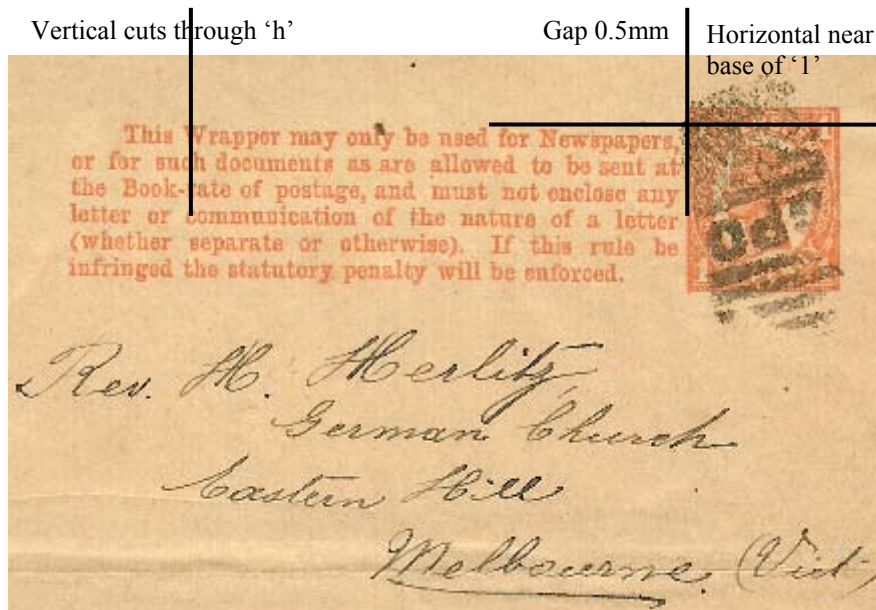 Vertical cuts through ‘h’
Gap 0.5mm
Horizontal near
base of ‘1’
This Wrapper may only be used for Newspapers,
or for such documents as are allowed to be sent at
the Book-rate of postage, and must not enclose any
letter or communication of the nature of a letter
(whether separate or otherwise). If this rule be
infringed the statutory penalty will be enforced.
GPO
Rev. H. Herlitz,
German Church
Eastern Hill
Melbourne (Vict)